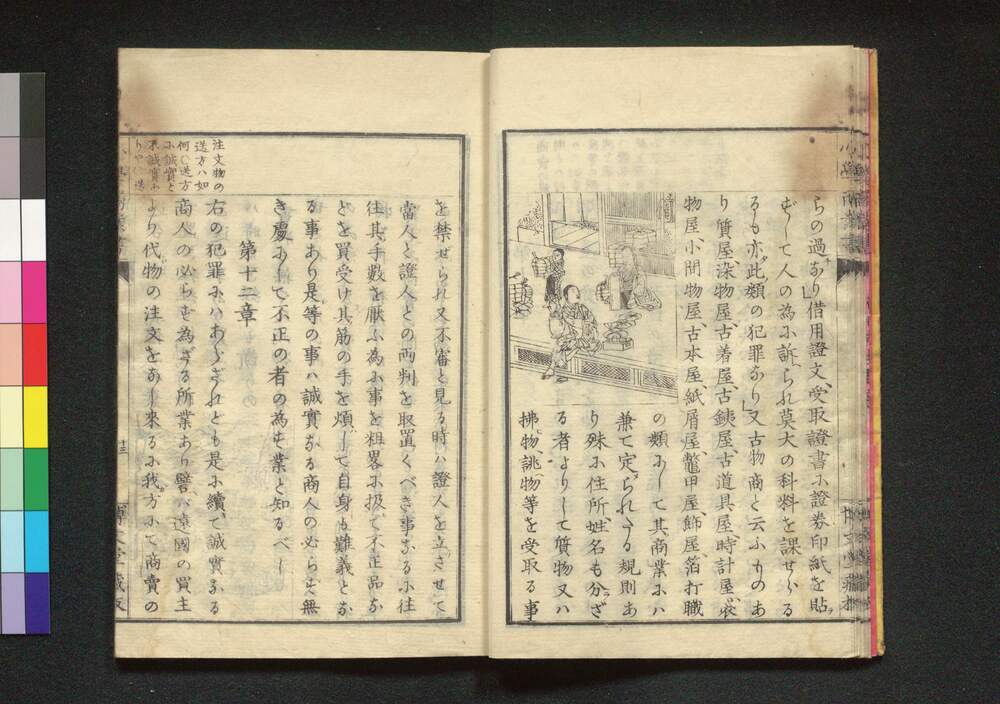 らの過あり借用證文、受取證書に證券印紙を貼
ずして人の為に訴へられ莫大の科料を課せらる
るも亦此類の犯罪なり又古物商と云ふものあ
り質屋、染物屋、古着屋、古銕屋、古道具屋、時計屋、袋
物屋、小間物屋、古本屋、紙屑屋、鼈甲屋、飾屋、箔打職
の類にして其商業には
兼て定められたる規則あ
り殊に住所姓名も分らざ
る者よりして質物又は
拂物、誂物等を受取る事
を禁ぜられ又不審と見る時は證人を立させて
當人と證人との両判を取置くべき事なるに往
往其手数を厭ふ為に事を粗畧に扱ひて不正品な
どを買受け其筋の手を煩して自身も難義とな
る事あり是等の事は誠實なる商人の必らず無
き慶にして不正の者の為す業と知るべし
第十二章
右の犯罪にはあらざれとも是に續て誠實なる
商人の必らず為ざる所業あり譬ば遠國の買主
より代物の注文をなし來るに我方にて商賣の
注文物の
送方ハ如
何し送方
に誠實と
不誠實あ
りや